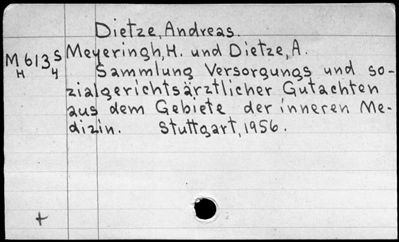 Dietze, Andreas.
M613s Meyeringh, H. und Dietze, A.
H 4 Sammlung Versorgungs und so-
zialgerichtsärztlicher Gutachten
aus dem Gebiete der inneren Me-
dizin. Stuttgart, 1956.
+